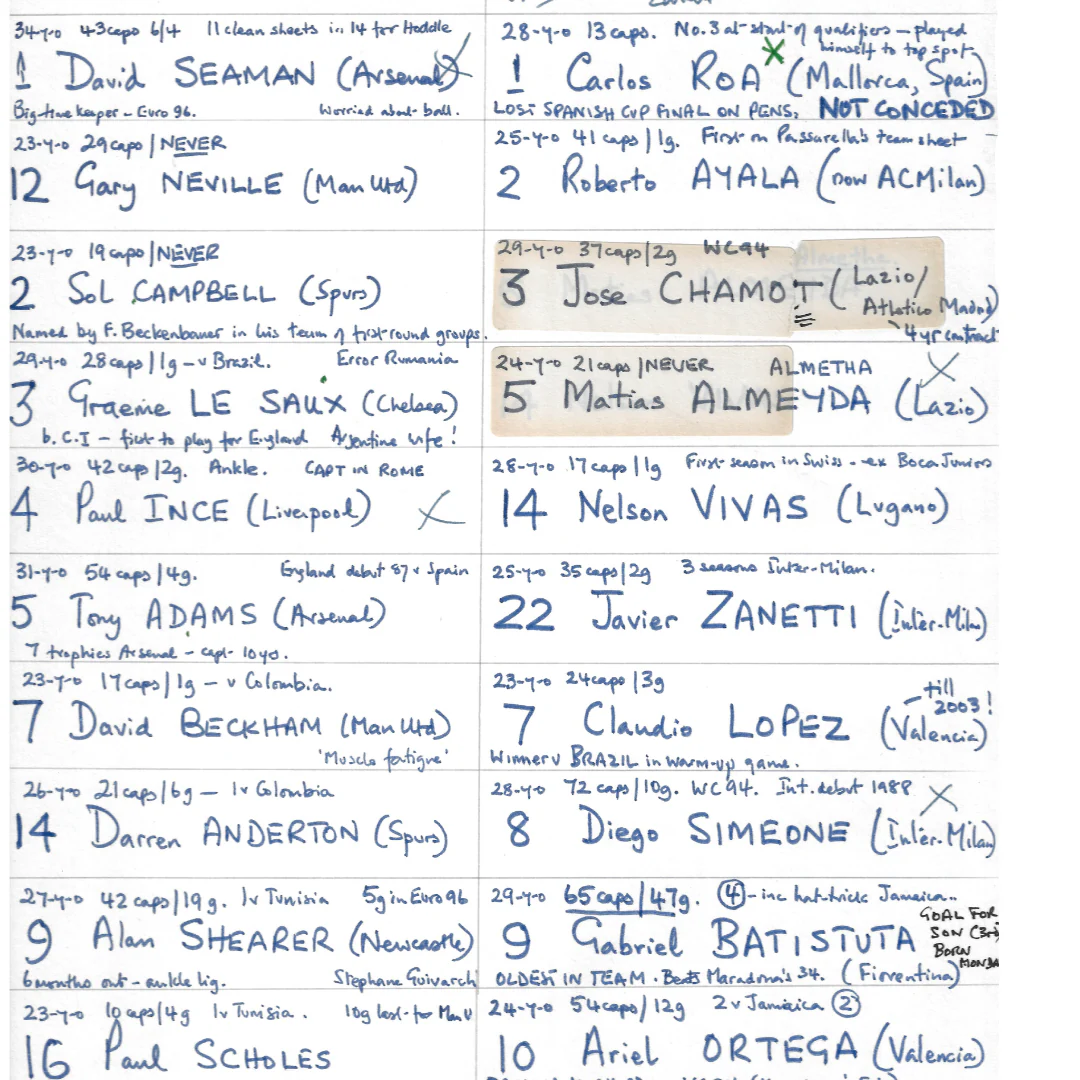 34-y-o 43caps 6/4 11 clean sheets in 14 for Hoddle
1 David SEAMAN (Arsenal)
Big-time keeper - Euro 96. Worried about ball.
23-y-o 29caps | NEVER
12 Gary NEVILLE (Man Utd)
23-y-o 19caps | NEVER
2 Sol CAMPBELL (Spurs)
Named by F. Beckenbauer in his team of first-round groups.
29-y-o 28caps | 1g - v Brazil. Error Rumania
3 Graeme LE SAUX (Chelsea)
b. C.I - first to play for England Argentine wife!
30-y-o 42 caps | 2g. Ankle. CAPT IN ROME
4 Paul INCE (Liverpool)
31-y-o 54 caps | 4g. England debut 87 v Spain
5 Tony ADAMS (Arsenal)
7 trophies Arsenal - capt- 10yo.
23-y-o 17caps | 1g - v Colombia.
7 David BECKHAM (Man Utd)
'Muscle fatigue'
26-y-o 21caps | 6g - 1v Colombia
14 Darren ANDERTON (Spurs)
27-y-o 42 caps | 19g. 1v Tunisia 5g in Euro 96
9 Alan SHEARER (Newcastle)
6months out - ankle lig. Stephane Guivarch
23-y-o 10 caps | 4g 1v Tunisia. 10g last- for Man U
16 Paul SCHOLES
28-y-o 13 caps. No. 3 at start of qualifiers - played
himself to top spot
1 Carlos ROA (Mallorca, Spain)
LOST SPANISH CUP FINAL ON PENS. NOT CONCEDED
25-y-o 41 caps | 1g. First on Passarella's team sheet
2 Roberto AYALA (now AC Milan)
29-y-o 37caps | 2g WC94
3 Jose CHAMOT (Lazio/
Atletico Madrid)
4 yr contract
24-y-o 21caps | NEVER ALMETHA
5 Matias ALMEYDA (Lazio)
28-y-o 17 caps | 1g First season in Swiss - ex Boca Juniors
14 Nelson VIVAS (Lugano)
25-y-o 35caps | 2g 3 seasons Inter-Milan.
22 Javier ZANETTI (Inter-Milan)
23-y-o 24caps | 3g
till
2003!
7 Claudio LOPEZ (Valencia)
Winner v BRAZIL in warm-up game.
28-y-o 72 caps | 10g. WC94. Int. debut 1988
8 Diego SIMEONE (Inter-Milan)
29-y-o 65 caps | 47g. 4 - inc hat-trick Jamaica..
9 Gabriel BATISTUTA
GOAL FOR
SON (3rd)
BORN
OLDEST IN TEAM. Beats Maradona's 34. (Fiorentina)
24-y-o 54caps | 12g 2 v Jamaica 2
10 Ariel ORTEGA (Valencia)